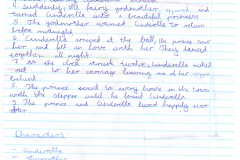 4 suddenly, the fairy godmother appeared and
turned Cinderella into a beautiful princess
5 The godmother warned Cinderella to return
before midnight.
6 Cinderella arrived at the ball, the prince saw
her, and fell in love with her. They danced
together all night.
7 as the clock struck twelve, Cinderella rushed
out to her carriage leaving one of her slipper
behind
8 The prince went to every house in the town
with the slipper until he found Cinderella
9 The prince and Cinderella lived happily ever
after.
Characters
- Cinderella
- Stepmother